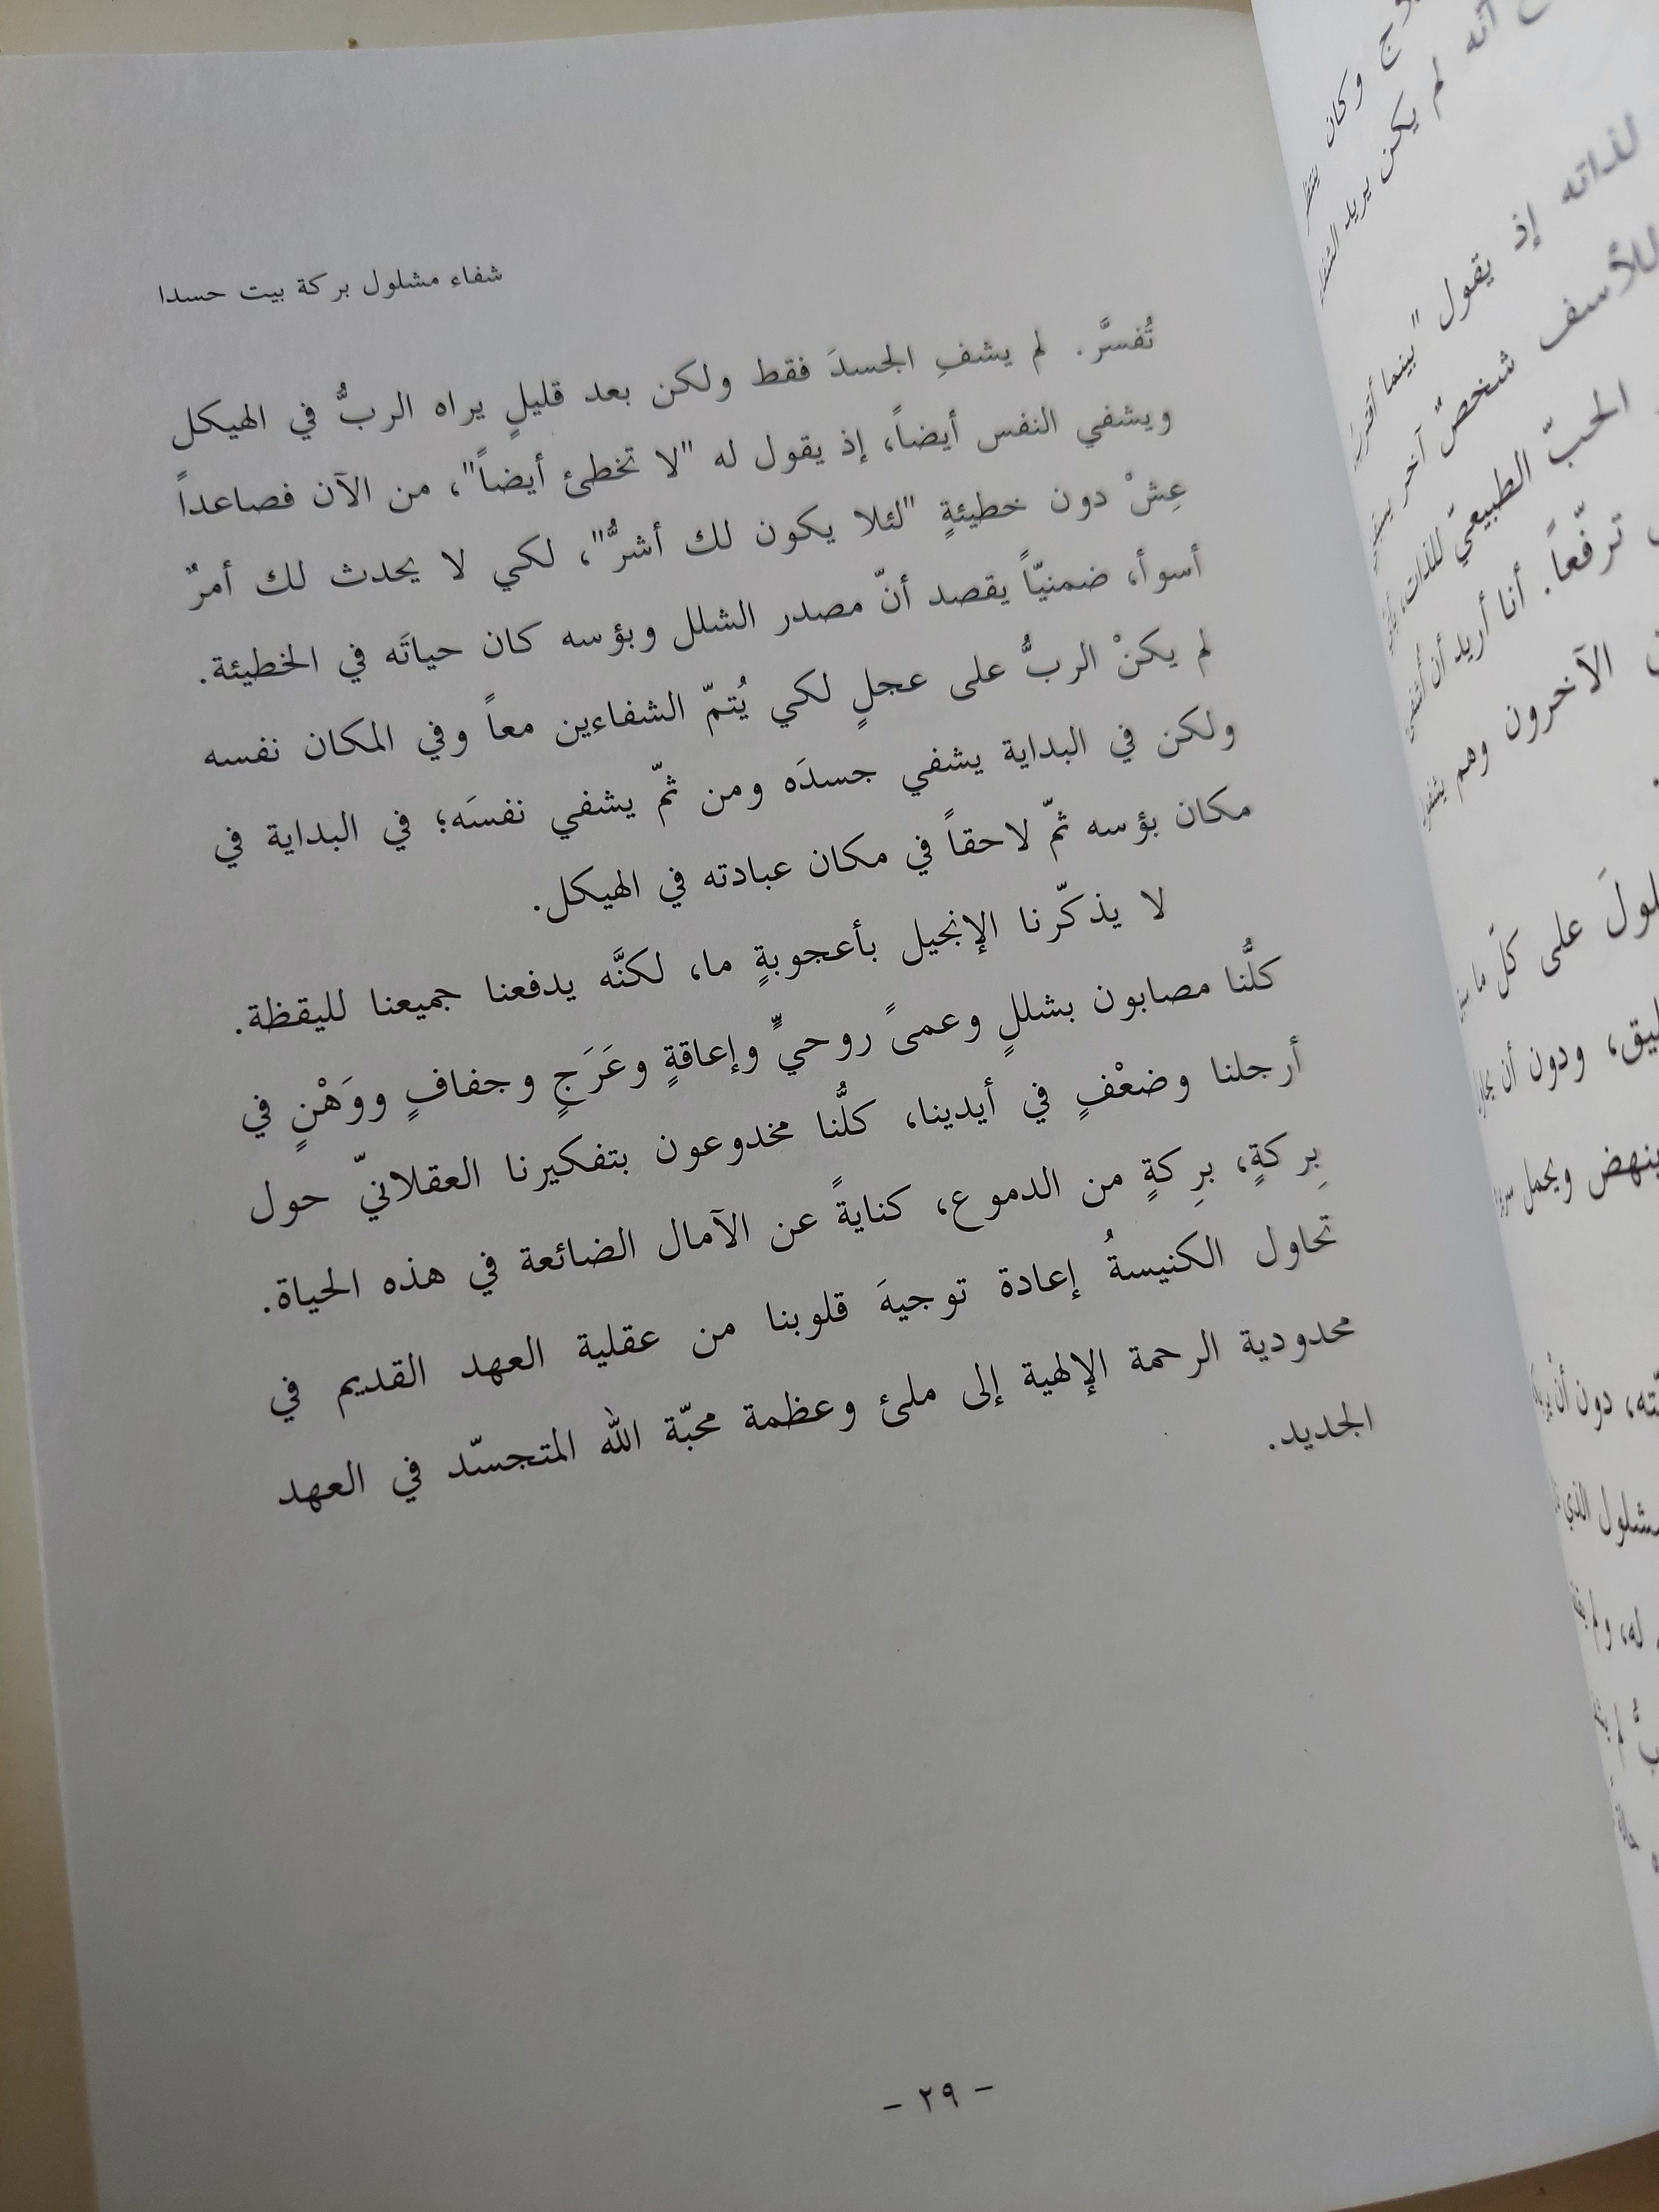 شفاء مشلول بركة بيت حسدا
تُفسَّر. لم يشفِ الجسدَ فقط ولكن بعد قليلٍ يراه الربُّ في الهيكل
ويشفي النفس أيضاً، إذ يقول له "لا تخطئ أيضاً"، من الآن فصاعداً
عِشْ دون خطيئةٍ "لئلا يكون لك أشرُّ"، لكي لا يحدث لك أمرٌ
أسوأ، ضمنيّاً يقصد أنّ مصدر الشلل وبؤسه كان حياتَه في الخطيئة.
لم يكنْ الربُّ على عجلٍ لكي يُتمّ الشفاءين معاً وفي المكان نفسه
ولكن في البداية يشفي جسدَه ومن ثمّ يشفي نفسَه؛ في البداية في
مكان بؤسه ثمّ لاحقاً في مكان عبادته في الهيكل.
لا يذكّرنا الإنجيل بأعجوبةٍ ما، لكنَّه يدفعنا جميعنا لليقظة.
كلُّنا مصابون بشللٍ وعمىً روحيٍّ وإعاقةٍ وعَرَجٍ وجفافٍ ووَهْنٍ في
أرجلنا وضعْفٍ في أيدينا، كلُّنا مخدوعون بتفكيرنا العقلانيّ حول
بِركةٍ، بركِةٍ من الدموع، كنايةً عن الآمال الضائعة في هذه الحياة.
تحاول الكنيسةُ إعادة توجيهَ قلوبنا من عقلية العهد القديم في
محدودية الرحمة الإلهية إلى ملئ وعظمة محبّة الله المتجسّد في العهد
الجديد.
- ٢٩ -
وكان
أنه لم يكن يريد
لذاته إذ يقول "بينما
للأسف شخصٌ آخر
الحبّ الطبيعيّ للذات،
ترفّعاً. أنا أريد أن
الآخرون وهم
على كلّ ما
ودون أن
ينهض ويحمل
دون أنْ
الذي
له،